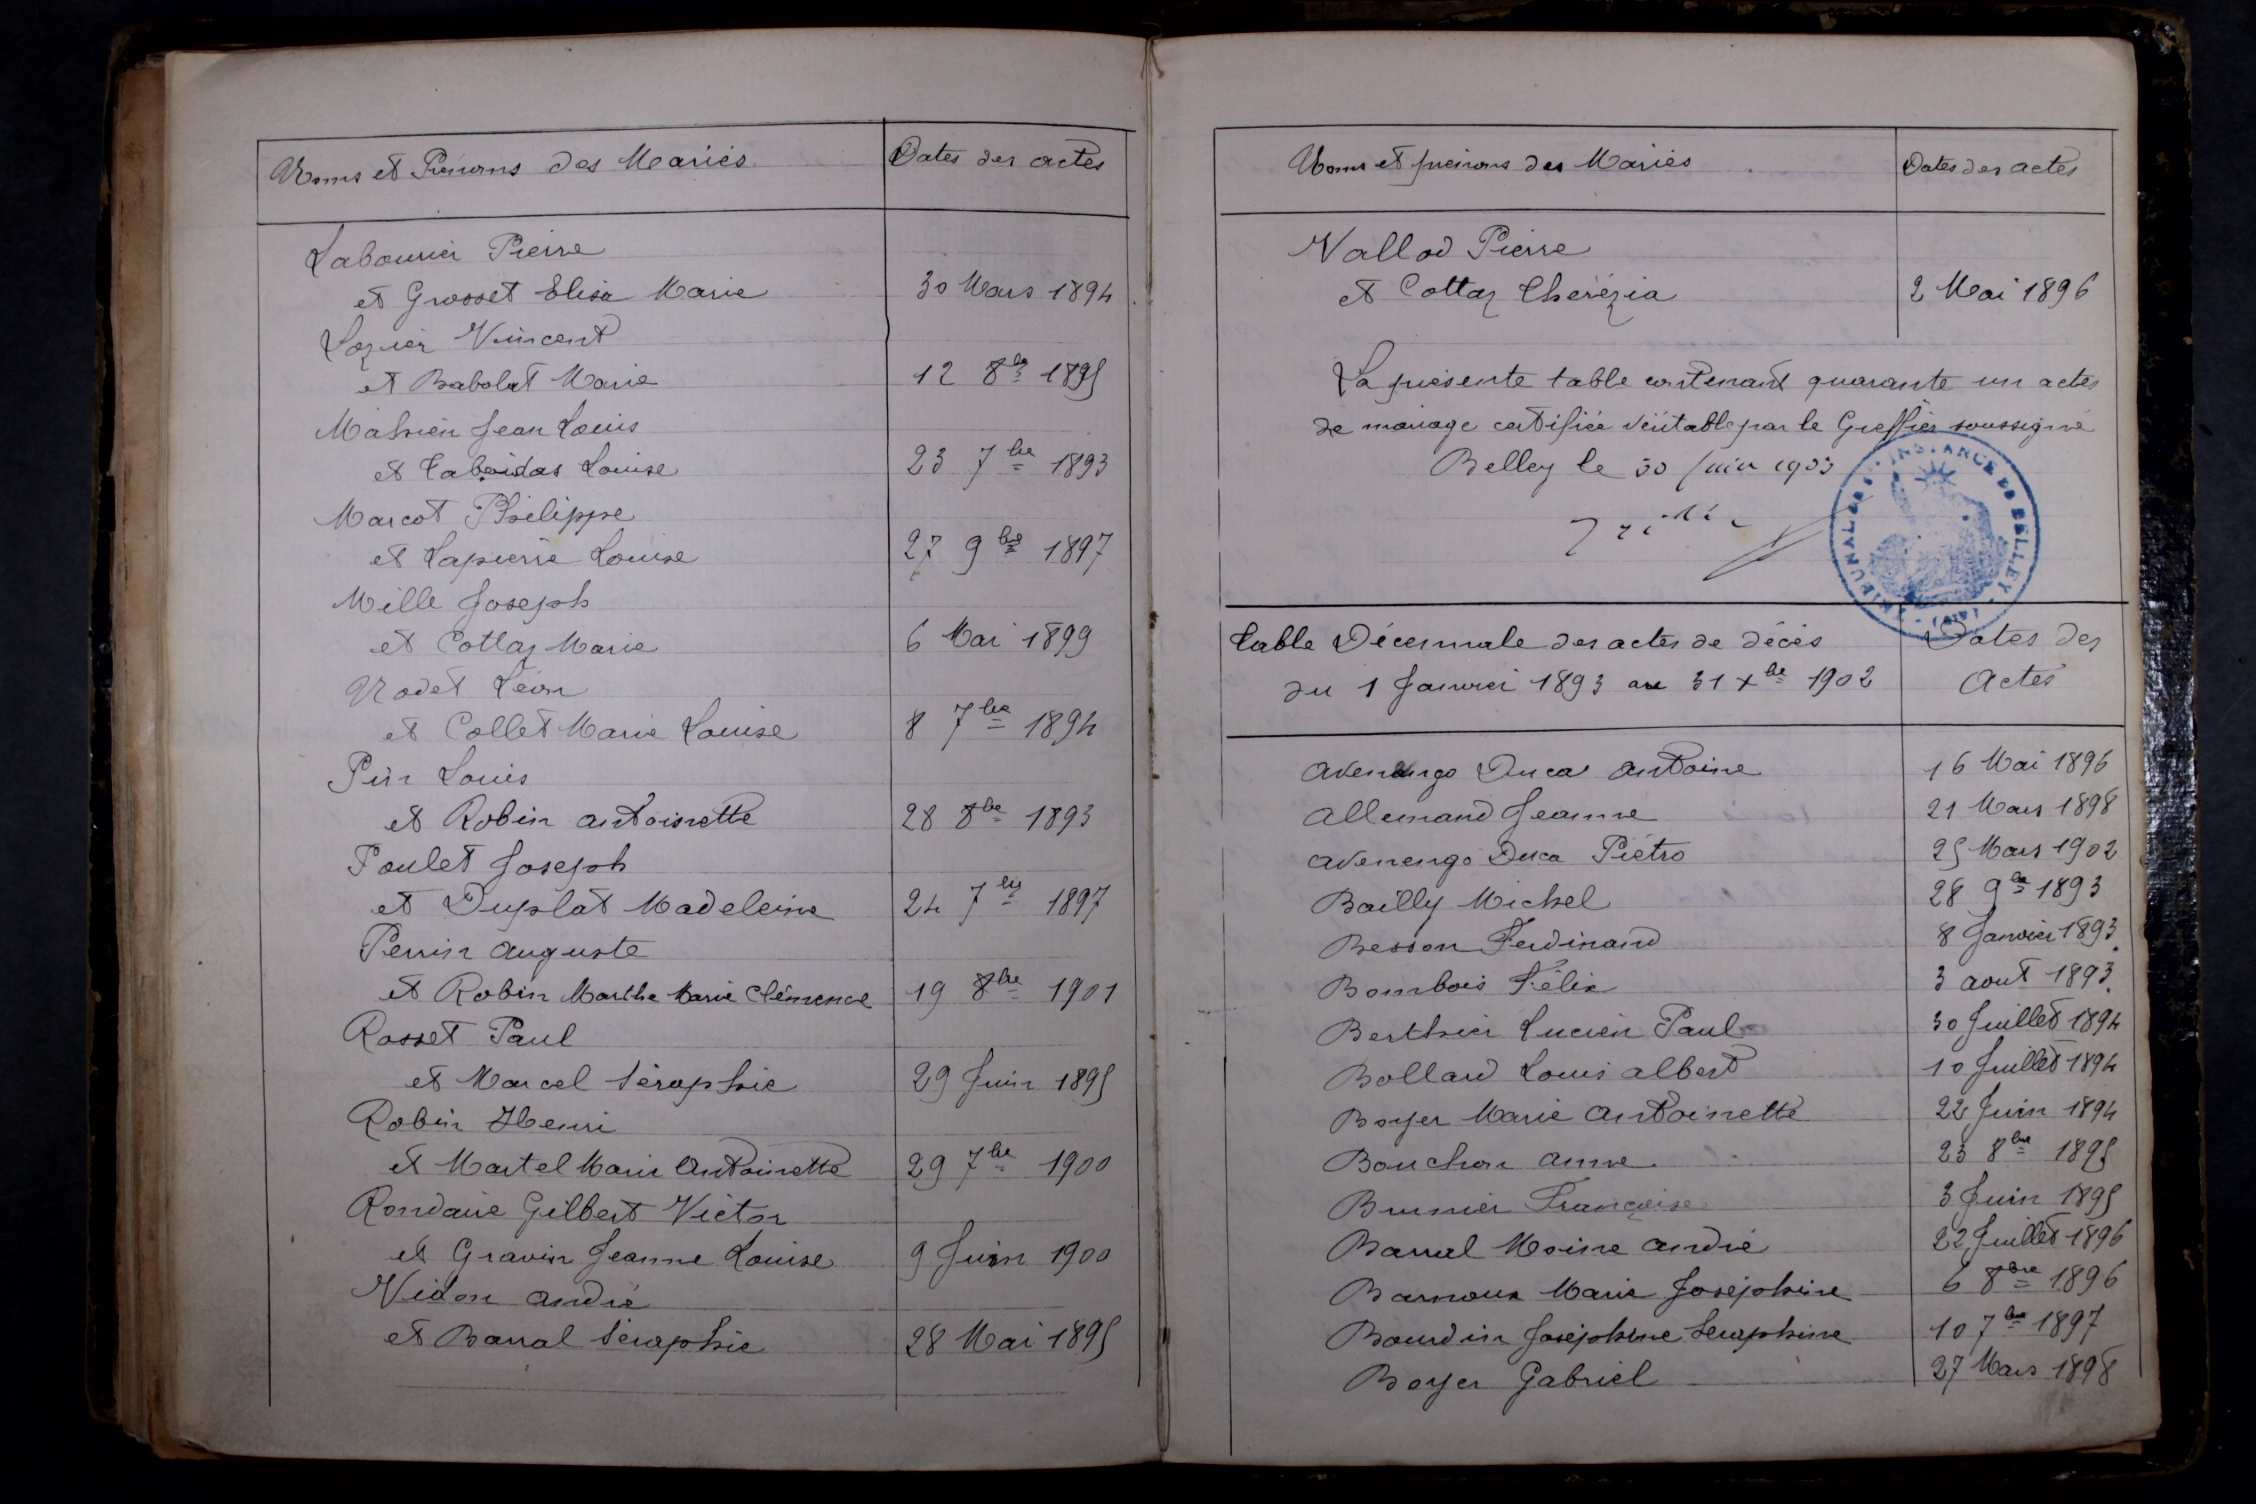 Noms et Prénoms des Mariés
Dates des actes
Labourier Pierre
et Grosset Elisa Marie
30 Mars 1894
Lozier Vincent
et Babolat Marie
12 8bre 1895
Mathieu Jean Louis
et Louise
23 7bre 1893
Marcot Philippe
et Lapierre Louise
27 9bre 1897
Mille Joseph
et Cottaz Marie
6 Mai 1899
Nodet Léon
et Collet Marie Louise
8 7bre 1894
Pin Louis
et Robin Antoinette
28 8bre 1893
Poulet Joseph
et Duplat Madeleine
24 7bre 1897
Perrin Auguste
et Robin Marthe Marie Clémence
19 8bre 1901
Rosset Paul
et Marcel Séraphie
29 Juin 1895
Robin Henri
et Martel Marie Antoinette
29 7bre 1900
Rondaire Gilbert Victor
et Gravin Jeanne Louise
9 Juin 1900
Vidon André
et Barral Séraphie
28 Mai 1895
Noms et prénoms des Mariés
Dates des actes
Vallod Pierre
et Cottaz Thérézia
2 Mai 1896
La présente table contenant quarante un actes
de mariage certifiée véritable par le Greffier soussigné
Belley le 30 Juin 1903
TRIBUNAL DE 1re INSTANCE DE BELLEY (AIN)
Table Décennale des actes de décès
du 1 Janvier 1893 au 31 xbre 1902
Dates des
Actes
Avenengo Duca Antoine
16 Mai 1896
Allemand Jeanne
21 Mars 1898
Avenengo Duca Piétro
25 Mars 1902
Bailly Michel
28 9bre 1893
Besson Ferdinand
8 Janvier 1893
Bombois Félix
3 aout 1893
Berthier Lucien Paul
30 Juillet 1894
Bolland Louis Albert
10 Juillet 1894
Boyer Marie Antoinette
22 Juin 1894
Bouchon Anne
23 8bre 1895
Brunier Françoise
3 Juin 1895
Barral Moine André
22 Juillet 1896
Barnoux Marie Joséphine
6 8bre 1896
Bourdin Joséphine Séraphine
10 7bre 1897
Boyer Gabriel
27 Mars 1898